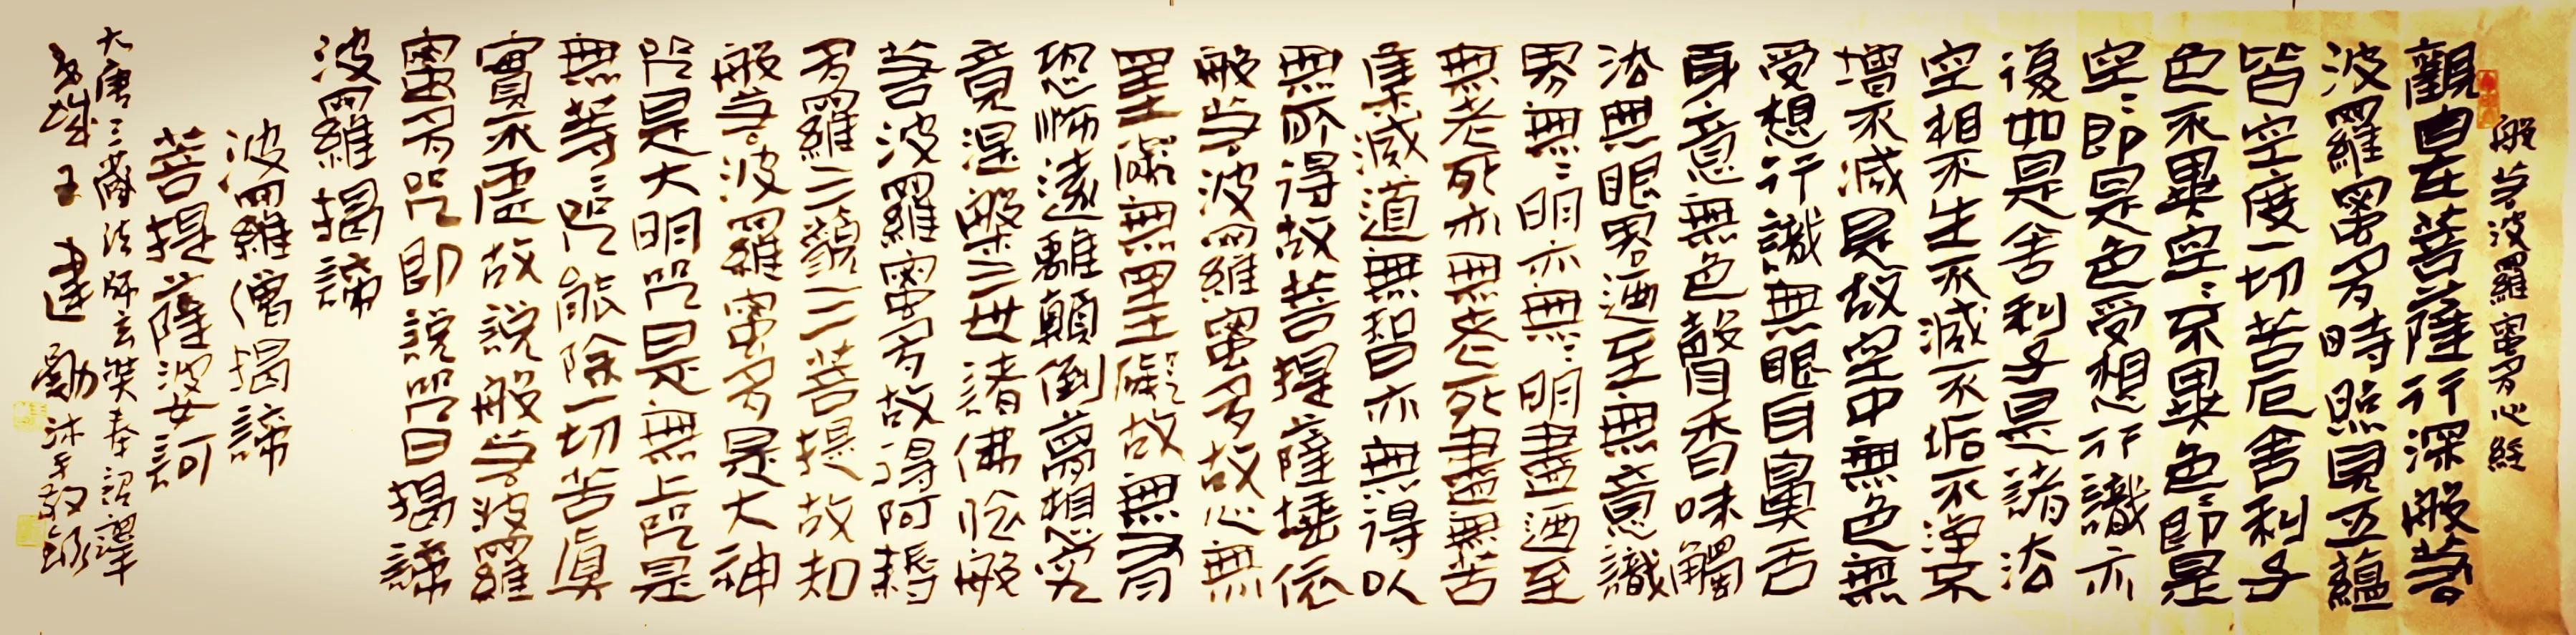 般若波羅蜜多心經
觀自在菩薩行深般若
波羅蜜多時照見五蘊
皆空度一切苦厄舍利子
色不異空〻不異色〻即是
空〻即是色受想行識亦
復如是舍利子是諸法
空相不生不滅不垢不淨不
增不減是故空中無色無
受想行識無眼耳鼻舌
身意無色聲香味觸
法無眼界迺至無意識
界無〻明亦無〻明盡迺至
無老死亦無老死盡無苦
集滅道無智亦無得以
無所得故菩提薩埵依
般若波羅蜜多故心無
罣礙無罣礙故無有
恐怖遠離顛倒夢想究
竟涅槃三世諸佛依般
若波羅蜜多故得阿耨
多羅三藐三菩提故知
般若波羅蜜多是大神
咒是大明咒是無上咒是
無等〻咒能除一切苦真
實不虛故說般若波羅
蜜多咒即說咒曰揭諦
波羅揭諦
波羅僧揭諦
菩提薩婆訶
大唐三藏法師玄奘奉詔譯
城王建勳沐手敬錄